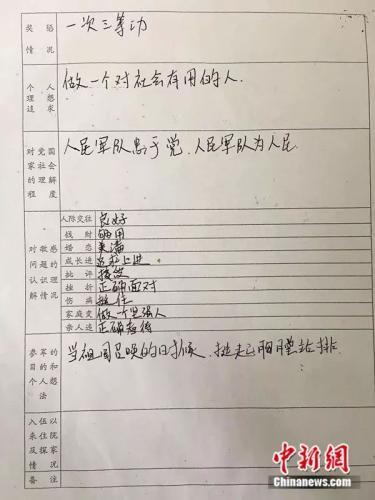 奖惩情况 一次三等功
个人理想追求 做一个对社会有用的人.
对党国家社会的理解程度 人民军队忠于党,人民军队为人民.
对敏感问题的认识理解情况
人际交往 良好
钱财 够用
婚恋 美满
成长进 追求上进
批评 接受
挫折 正确面对
伤病 挺住
家庭变 做一个坚强人
亲人逝 正确看待
参军的目的和个人想法 当祖国召唤的时候,挺起胸膛站排.
入伍以来住院及探家情况
备注
中新网
Chinanews.com